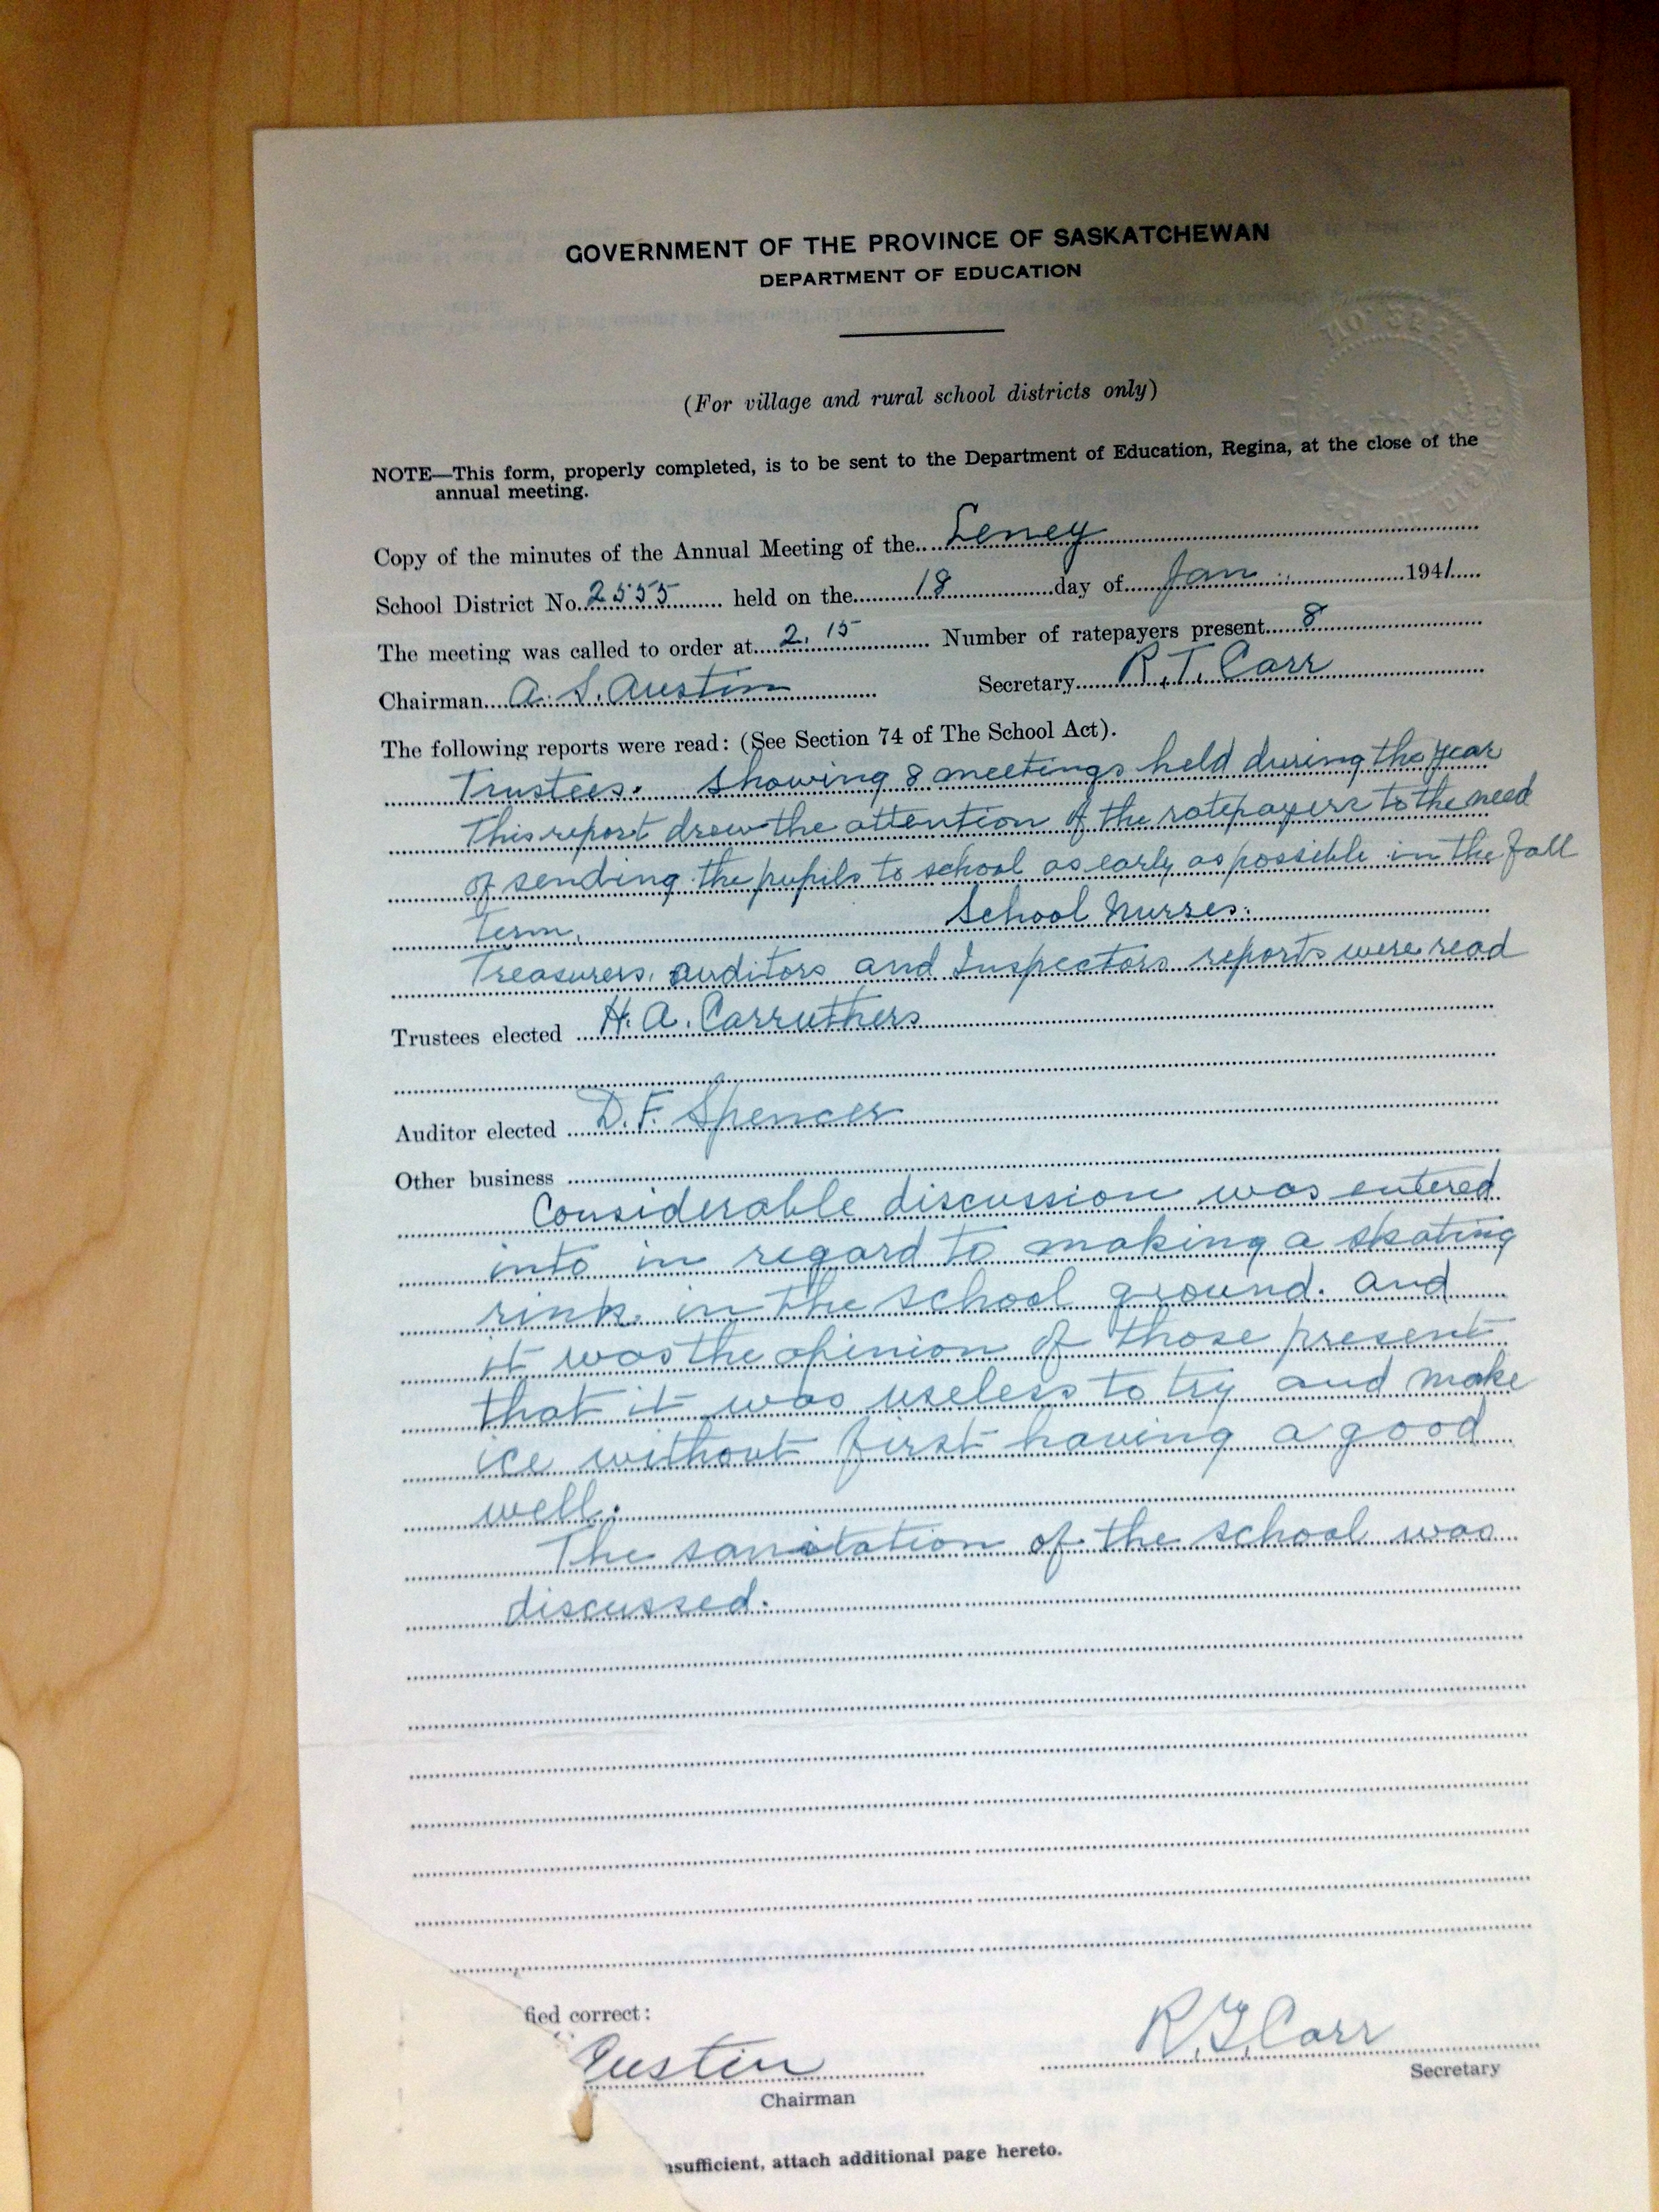 GOVERNMENT OF THE PROVINCE OF SASKATCHEWAN
DEPARTMENT OF EDUCATION
No. 3222
(For village and rural school districts only)
NOTE—This form, properly completed, is to be sent to the Department of Education, Regina, at the close of the
annual meeting.
Copy of the minutes of the Annual Meeting of the Leney
School District No. 2555 held on the 18 day of Jan 1941
The meeting was called to order at 2.15 Number of ratepayers present 8
Chairman A. S. Austin Secretary R.T. Carr
The following reports were read: (See Section 74 of The School Act).
Trustees. Showing 8 meetings held during the year
This report drew the attention of the ratepayers to the need
of sending the pupils to school as early as possible in the fall
Term. School Nurses.
Treasurers, auditors and Inspectors reports were read
Trustees elected H. A. Carruthers
Auditor elected D. F. Spencer
Other business
Considerable discussion was entered
into in regard to making a skating
rink in the school ground. and
it was the opinion of those present
that it was useless to try and make
ice without first having a good
well.
The sanitation of the school was
discussed.
fied correct:
Austin R.T. Carr
Chairman Secretary
nsufficient, attach additional page hereto.